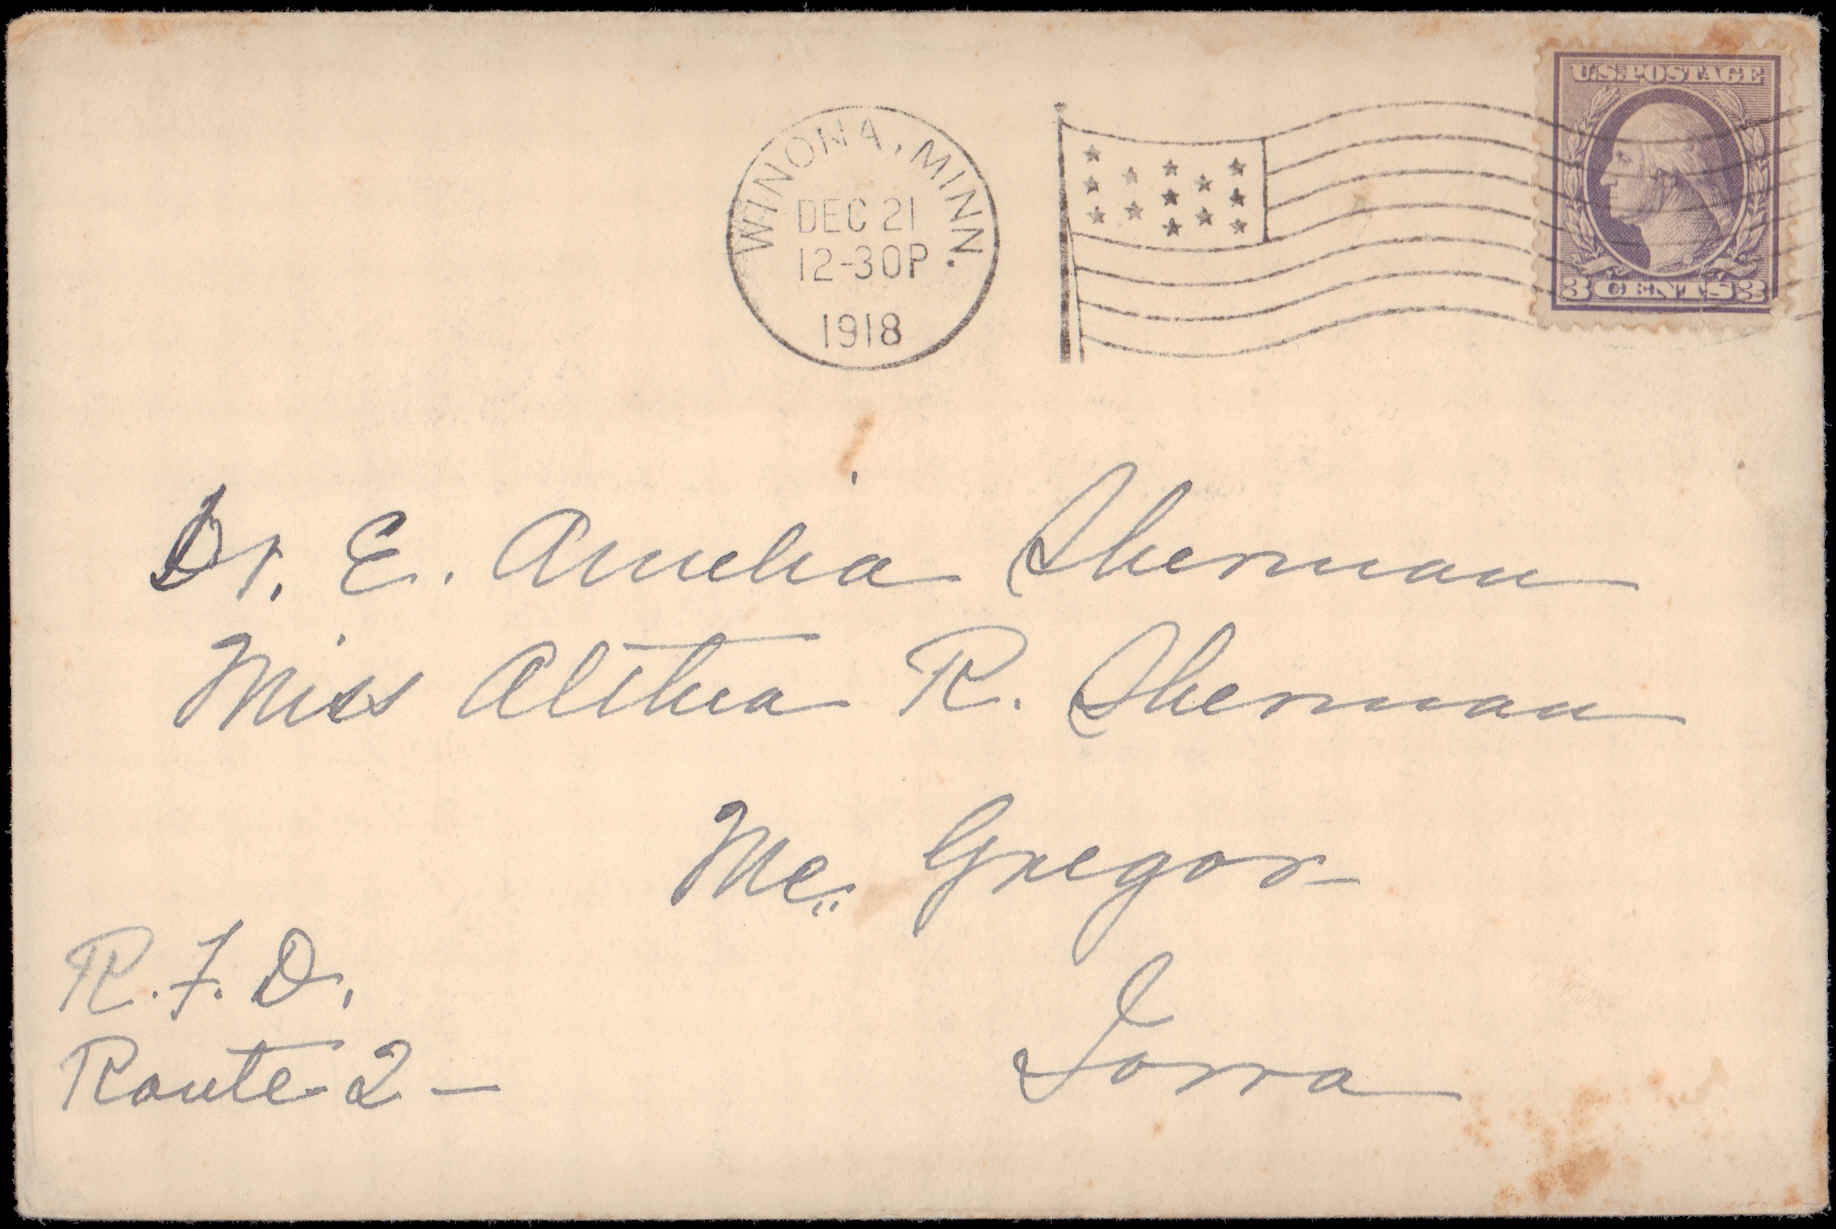 U.S. POSTAGE
3 CENTS 3
WINONA, MINN.
DEC 21
12-30P
1918
Dr. E. Amelia Sherman
Miss Althea R. Sherman
Mc. Gregor
Iowa
R.F.D.
Route 2 —